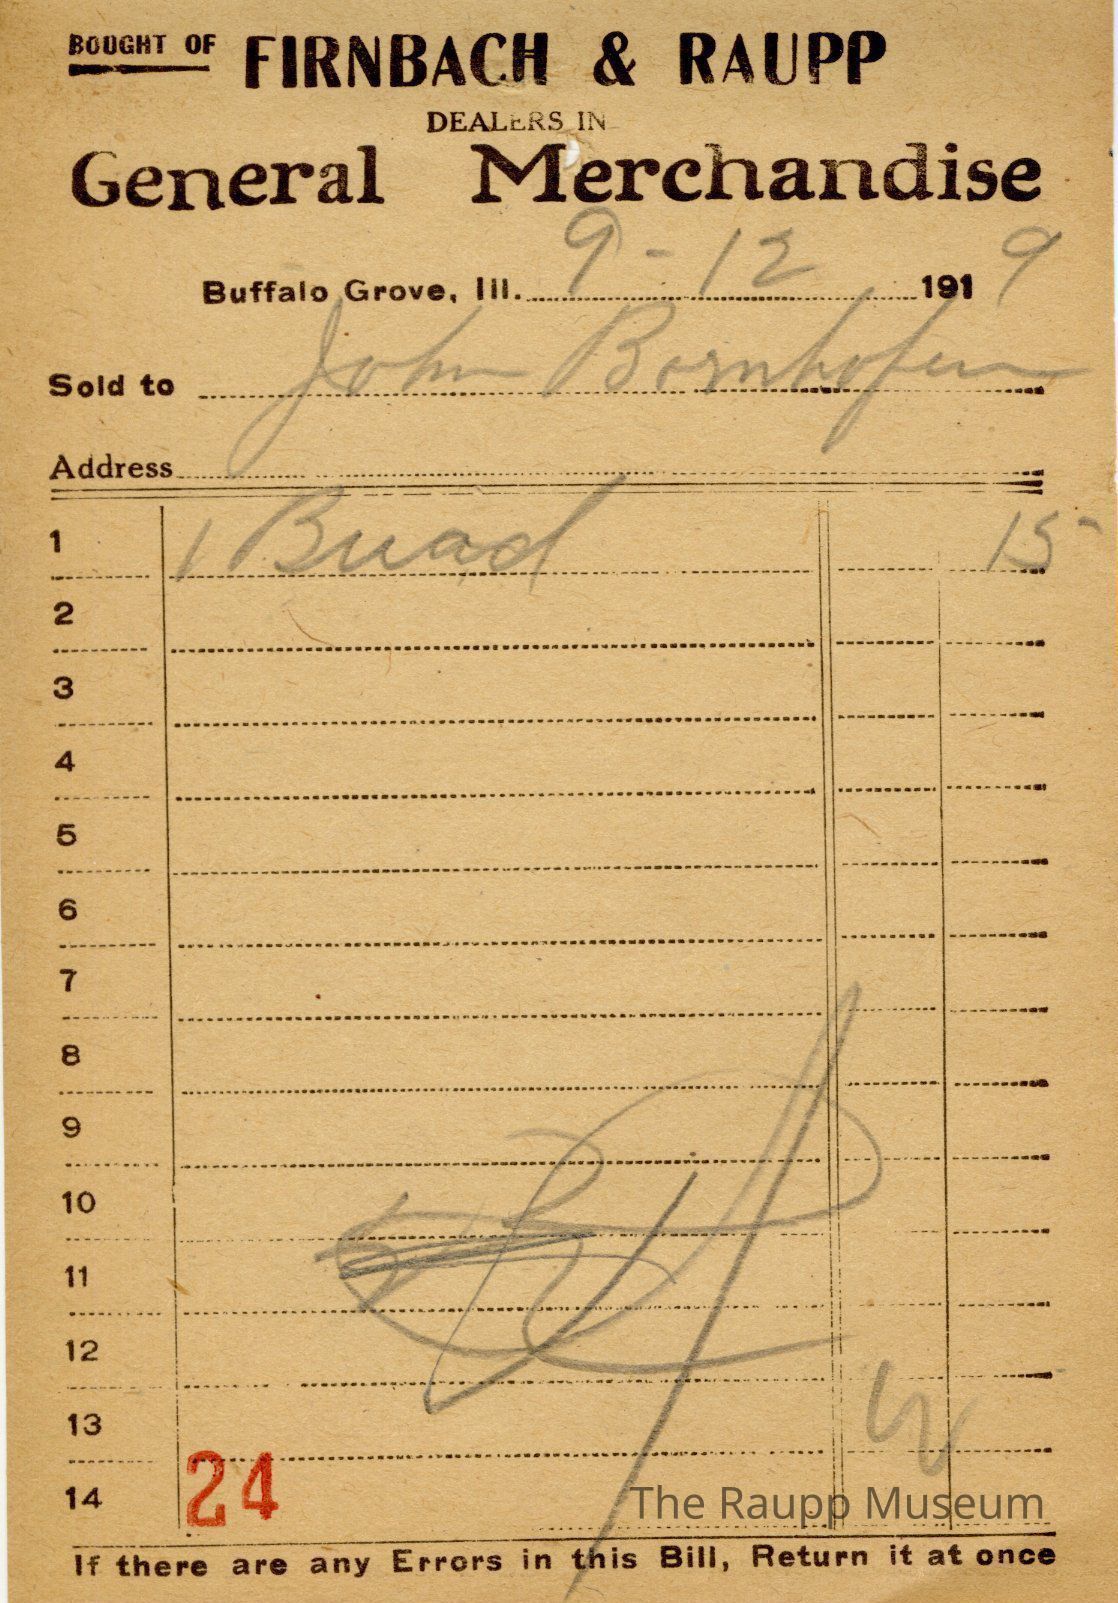 BOUGHT OF FIRNBACH & RAUPP
DEALERS IN
General Merchandise
Buffalo Grove, Ill. 9-12 1919
Sold to John Bornhofen
Address
1 1 Bread 15
2
3
4
5
6
7
8
9
10
11
12
13
14 24
The Raupp Museum
If there are any Errors in this Bill, Return it at once